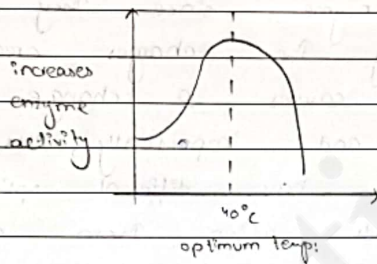 increases
enzyme
activity
40°C
optimum temp: